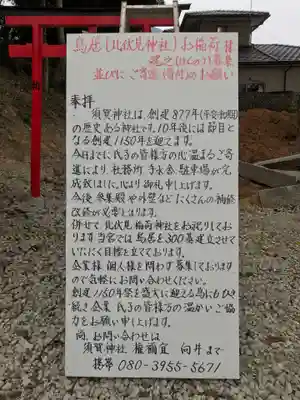 鳥居(北伏見神社)お稲荷様
建立(けんりつ)の募集
並びに ご寄進(寄付)のお願い
奉拝
須賀神社は、創建877年(平安初期)
の歴史ある神社です。10年後には節目と
なる創建1,150年を迎えます。
今日までに氏子の皆様方の心温まるご寄
進により、社務所 手水舎、駐車場が完
成致しました。心より御礼申し上げます。
今後 参集殿や外壁などにたくさんの補修
改修が必要となります。
併せて北伏見稲荷神社をお祀りして
おります当宮では鳥居を300基建立させて
いただく目標を立てております。
企業様 個人様を問わず募集しております
ので気軽にお問い合わせください。
創建1150年祭を盛大に迎える為にもひき
続き企業 氏子の皆様方の温かいご協
力をお願い申し上げます。
尚、お問い合わせは
須賀神社 権禰宜 向井まで
携帯 080-3955-5671